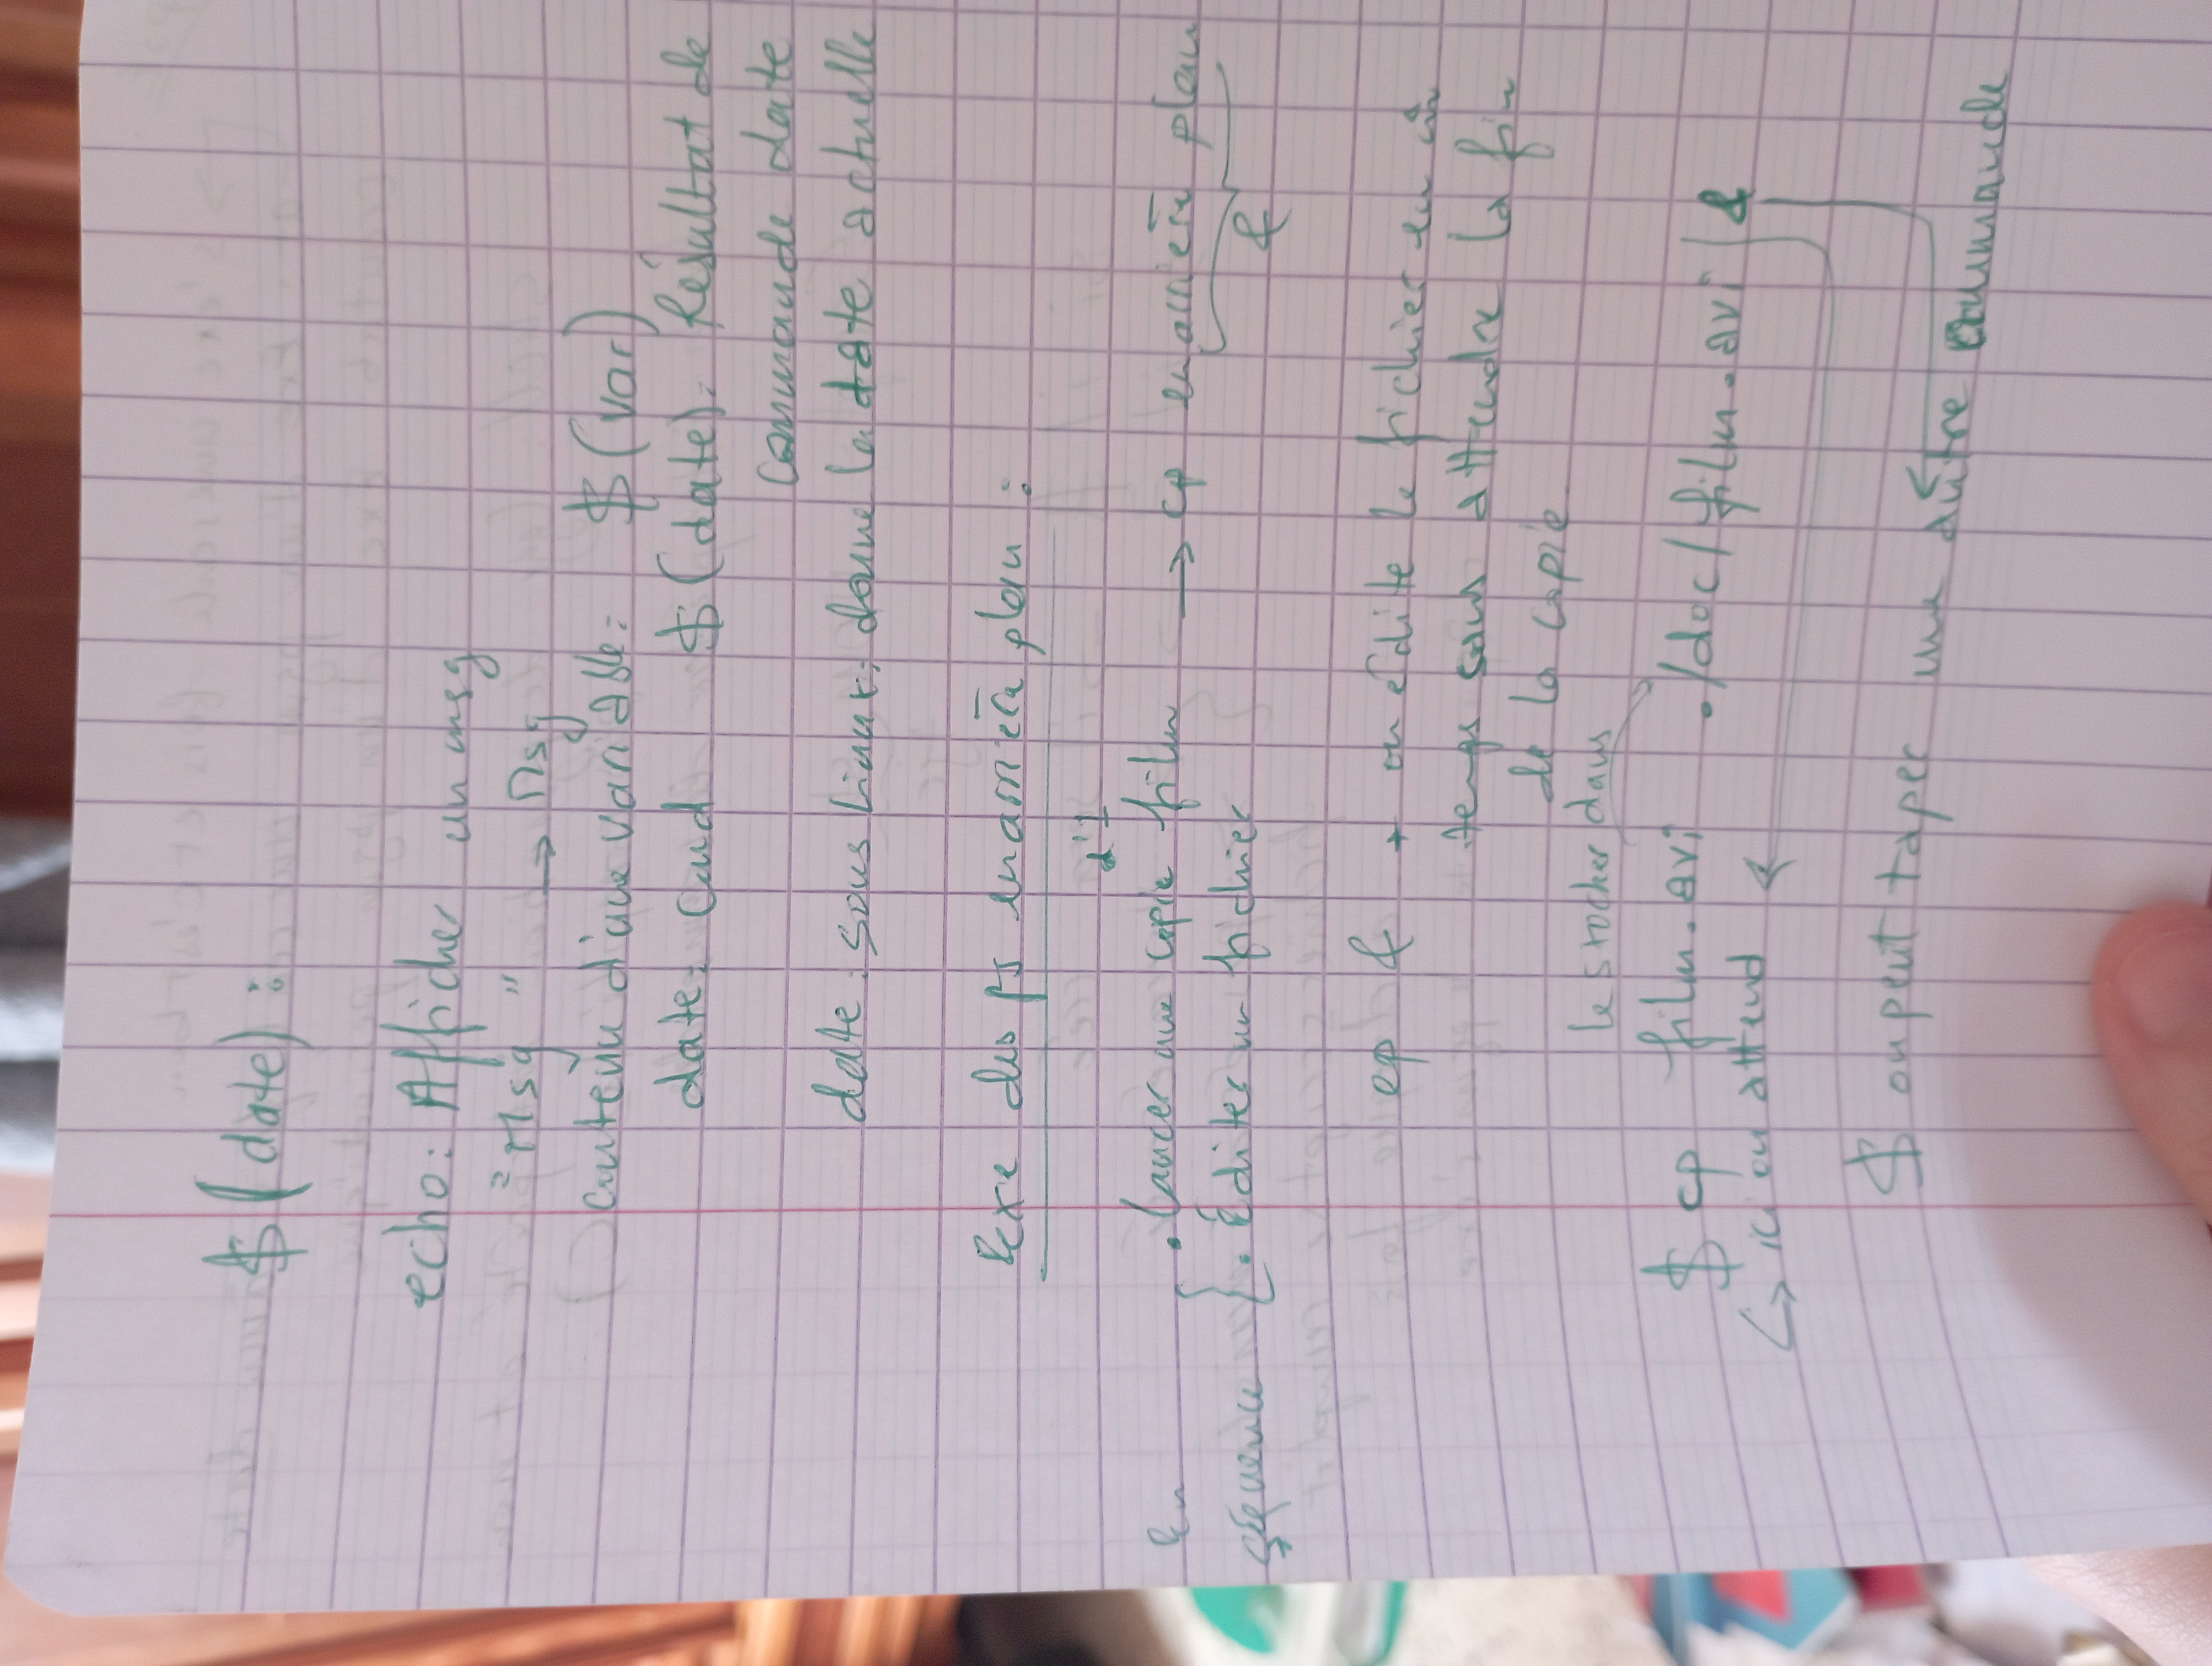 $(date) :
echo: Afficher un msg
"Msg" → Msg
Contenu d'une variable: $(var)
date: Cmd $(date). Résultat de
commande date
date: sous Linux, donne la date actuelle
Exe des ps en arrière plan :
d'1
En séquence { . lancer une copie film → cp en arrière plan
. Éditer un fichier &
cp & → on édite le fichier en m̂
temps sans attendre la fin
de la copie
le stocker dans
$ cp film.avi ./doc/film.avi &
↳ ici on attend ←
$ on peut taper une autre commande